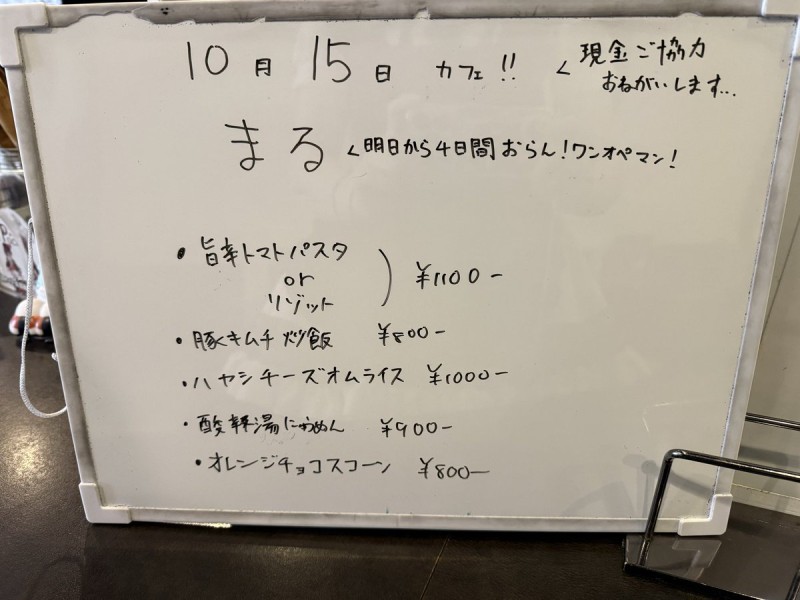 10月15日 カフェ!! < 現金ご協力
おねがいします...
まる < 明日から4日間おらん!ワンオペマン!
・旨辛トマトパスタ
or
リゾット
) ¥1100-
・豚キムチ炒飯 ¥800-
・ハヤシチーズオムライス ¥1000-
・酸辣湯にゅうめん ¥900-
・オレンジチョコスコーン ¥800-